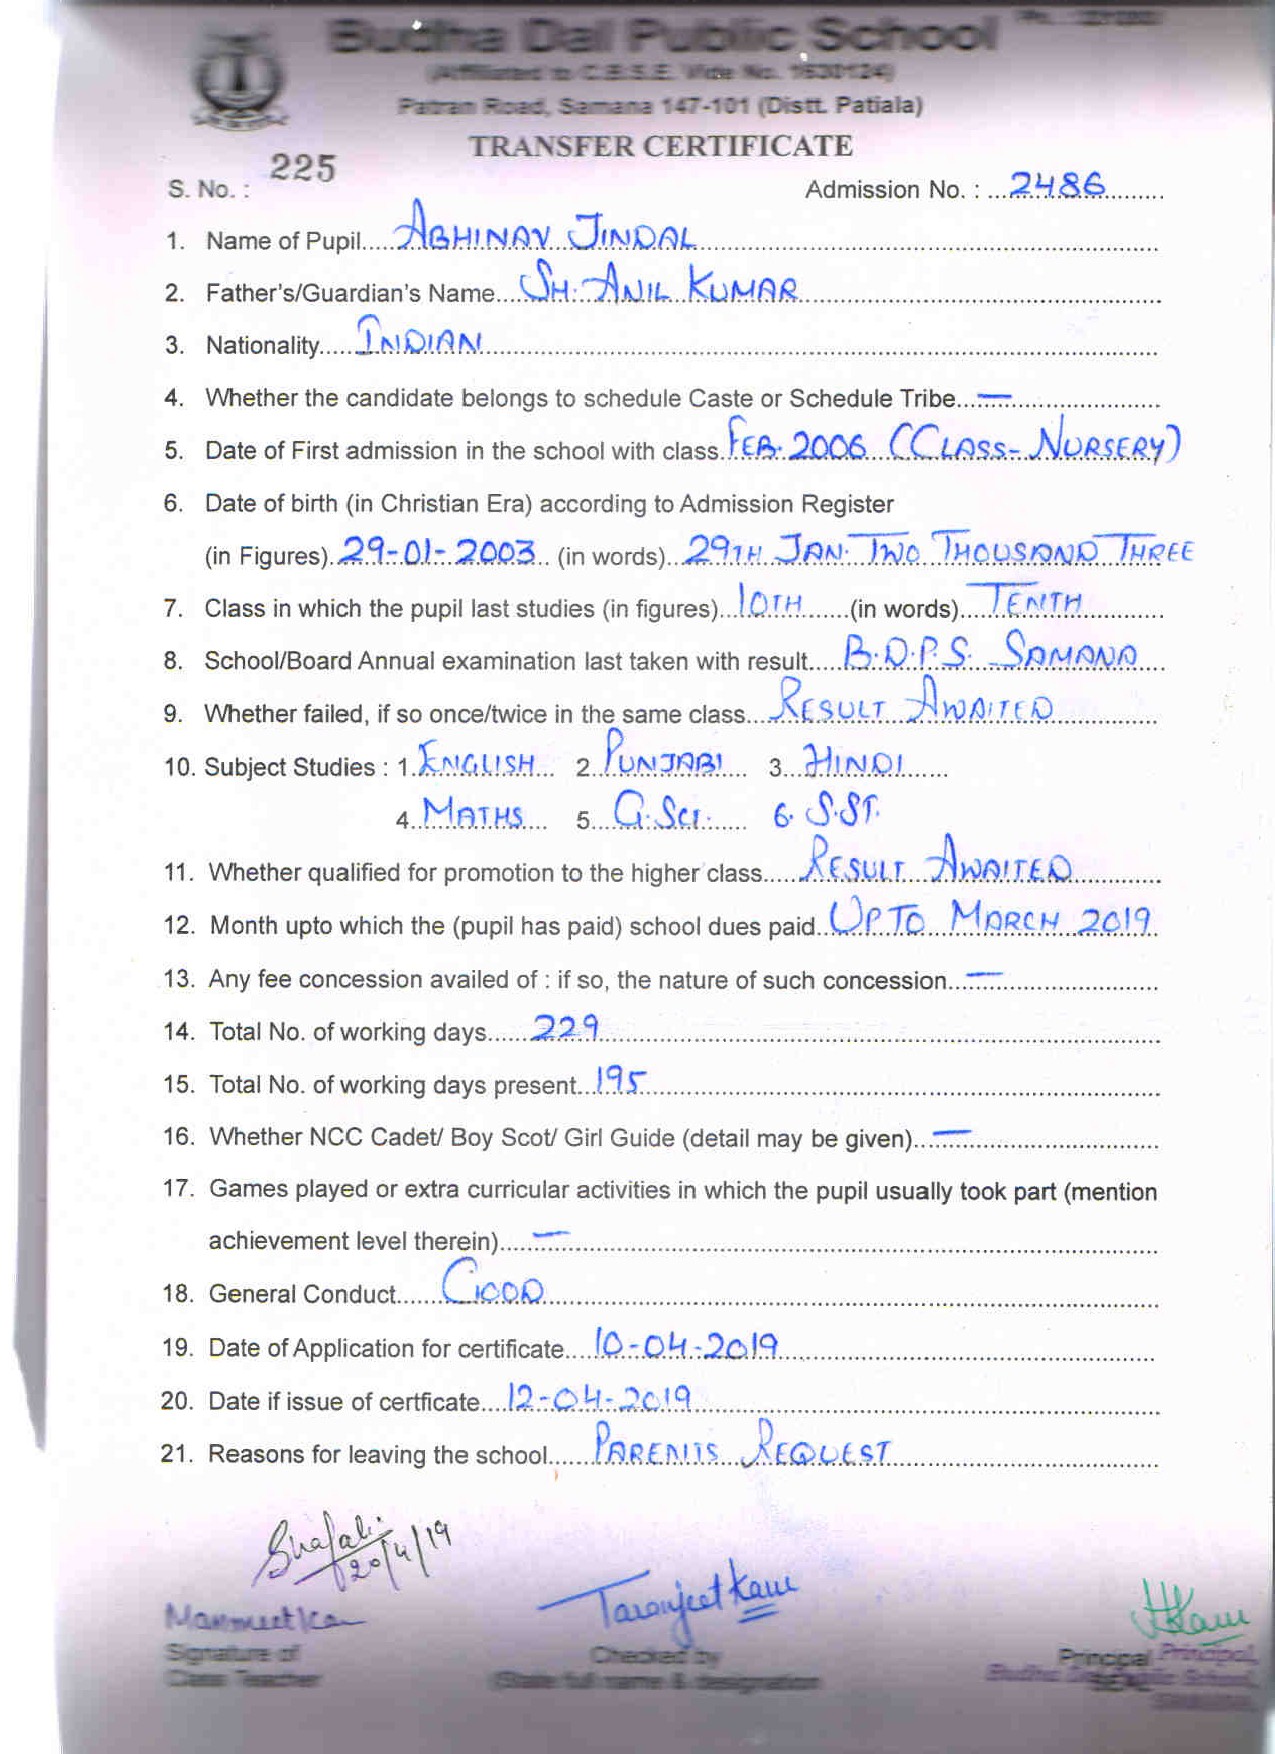 Budha Dal Public School
(Affiliated to C.B.S.E. Vide No. 1630124)
Patran Road, Samana 147-101 (Distt. Patiala)
TRANSFER CERTIFICATE
S. No. : 225 Admission No. : ...2486
1. Name of Pupil.....ABHINAV JINDAL
2. Father's/Guardian's Name....SH. ANIL KUMAR
3. Nationality.....INDIAN
4. Whether the candidate belongs to schedule Caste or Schedule Tribe...—
5. Date of First admission in the school with class.FEB. 2006 (CLASS- NURSERY)
6. Date of birth (in Christian Era) according to Admission Register
(in Figures).29-01-2003.. (in words)...29TH JAN. TWO THOUSAND THREE
7. Class in which the pupil last studies (in figures)..10TH......(in words)....TENTH
8. School/Board Annual examination last taken with result.....B.D.P.S. SAMANA....
9. Whether failed, if so once/twice in the same class...RESULT AWAITED
10. Subject Studies : 1.ENGLISH... 2..PUNJABI.... 3...HINDI......
4..MATHS.... 5....G.SCI...... 6. S.ST.
11. Whether qualified for promotion to the higher class.....RESULT AWAITED
12. Month upto which the (pupil has paid) school dues paid..UPTO MARCH 2019.
13. Any fee concession availed of : if so, the nature of such concession...—
14. Total No. of working days......229
15. Total No. of working days present...195
16. Whether NCC Cadet/ Boy Scot/ Girl Guide (detail may be given)...—
17. Games played or extra curricular activities in which the pupil usually took part (mention
achievement level therein).....—
18. General Conduct.......GOOD
19. Date of Application for certificate....10-04-2019
20. Date if issue of certficate....12-04-2019
21. Reasons for leaving the school......PARENTS REQUEST
Shafali
20/4/19
Manmeet Kau Taranjeet Kaur HKaur
Signature of Checked by Principal Principal,
Class Teacher (State full name & designation) Budha Dal Public School,
SEAL